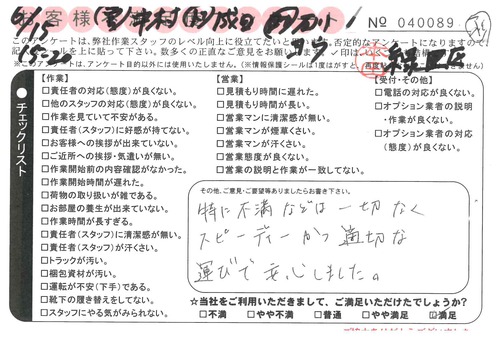 客様
№ 040089
このアンケートは、弊社作業スタッフのレベル向上に役立てたいと
否定的なアンケートになりますので
15:20
チェックリスト
【作業】
□責任者の対応(態度)が良くない。
□他のスタッフの対応(態度)が良くない。
□作業を見ていて不安がある。
□責任者(スタッフ)に好感が持てない。
□お客様への挨拶が出来ていない。
□ご近所への挨拶・気遣いが無い。
□作業開始前の内容確認がなかった。
□作業開始時間が遅れた。
□荷物の取り扱いが雑である。
□お部屋の養生が出来ていない。
□作業時間が長すぎる。
□責任者(スタッフ)に清潔感が無い。
□責任者(スタッフ)が汗くさい。
□トラックが汚い。
□梱包資材が汚い。
□運転が不安(下手)である。
□靴下の履き替えをしてない。
□スタッフにやる気がみられない。
【営業】
□見積もり時間に遅れた。
□見積もり時間が長い。
□営業マンに清潔感が無い。
□営業マンが煙草くさい。
□営業マンが汗くさい。
□営業態度が良くない。
□営業の説明と作業が一致してない。
【受付・その他】
□電話の対応が良くない。
□オプション業者の説明
・作業が良くない。
□オプション業者の対応
(態度)が良くない。
その他、ご意見・ご要望等ありましたらお書き下さい。
特に不満などは一切なく
スピーディーかつ適切な
運びで安心しました。
☆当社をご利用いただきまして、ご満足いただけたでしょうか?
□不満 □やや不満 □普通 □やや満足 ☑満足